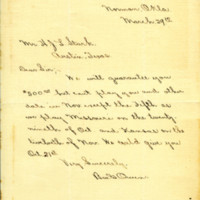 Norman Okla.
March 29th
Mr H. J. L. Stark
Austin, Texas
Dear Sir,
We will guarantee you
$300.00 but cant play you any other
date in Nov except the fifth as
we play Missouri on the twenty-
ninth of Oct and Kansas on the
twelfth of Nov. We could give you
Oct 21st
Very Sincerely,
Owen